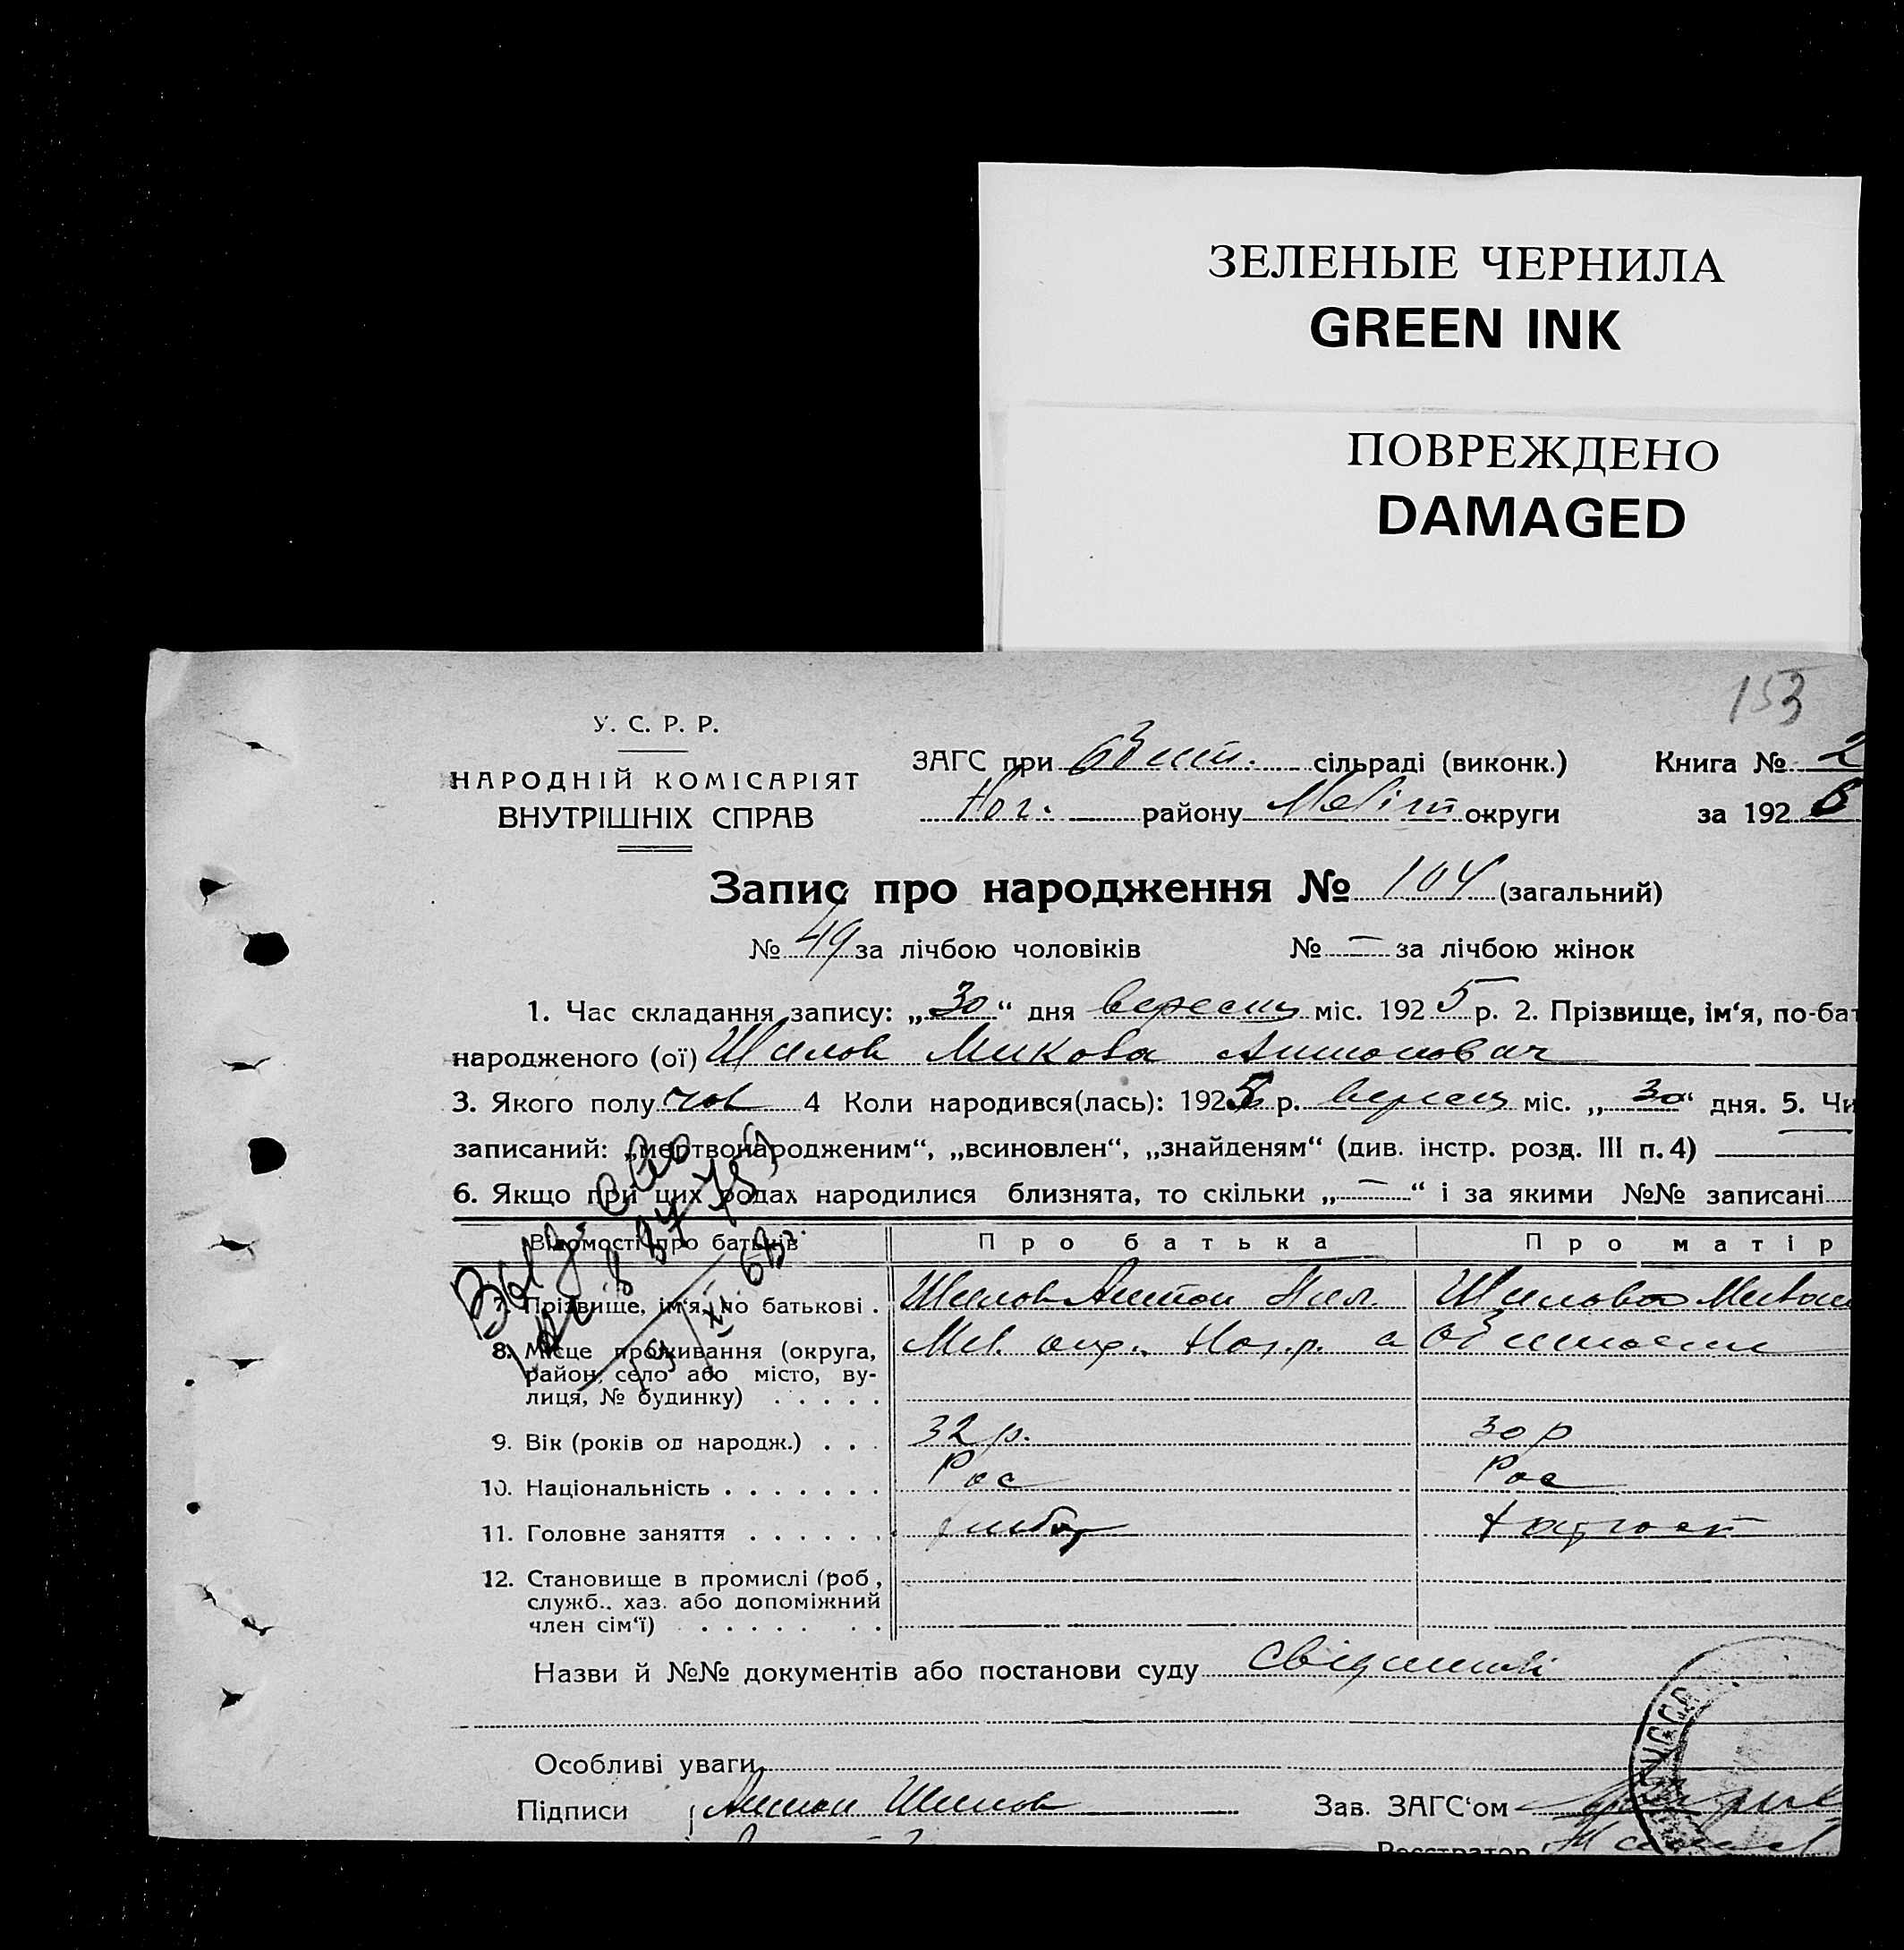 ЗЕЛЕНЫЕ ЧЕРНИЛА
GREEN INK
ПОВРЕЖДЕНО
DAMAGED
153
У. С. Р. Р.
НАРОДНІЙ КОМІСАРІЯТ
ВНУТРІШНІХ СПРАВ
ЗАГС при сільраді (виконк.) Книга № 2
Ног. району Меліт округи за 192
Запис про народження № 104 (загальний)
№ 49 за лічбою чоловіків № — за лічбою жінок
1. Час складання запису: „30“ дня вересня міс. 1925 р. 2. Прізвище, ім‘я, по-бат
народженого (ої) Шилов Микола Антонович
3. Якого полу чол 4 Коли народився(лась): 1925 р. вересня міс. „30“ дня. 5. Чи
записаний: „мертвонародженим“, „всиновлен“, „знайденям“ (див. інстр. розд. III п. 4)
6. Якщо при цих родах народилися близнята, то скільки „—“ і за якими №№ записані
Відомості про батьків Про батька Про матір
7. Прізвище, ім‘я, по батькові . Шилов Антон Шилова
8. Місце проживання (округа, Мел. окр. Ног. р. с
район, село або місто, ву-
лиця, № будинку) . . . . .
9. Вік (років од народж.) . . . 32 р. 30 р
10. Національність . . . . . . . Рос Рос
11. Головне заняття . . . . . .
12. Становище в промислі (роб,
служб., хаз. або допоміжний
член сім‘ї) . . . . . . .
Назви й №№ документів або постанови суду
Особливі уваги
Підписи Антон Шилов Зав. ЗАГС‘ом
Реєстратор